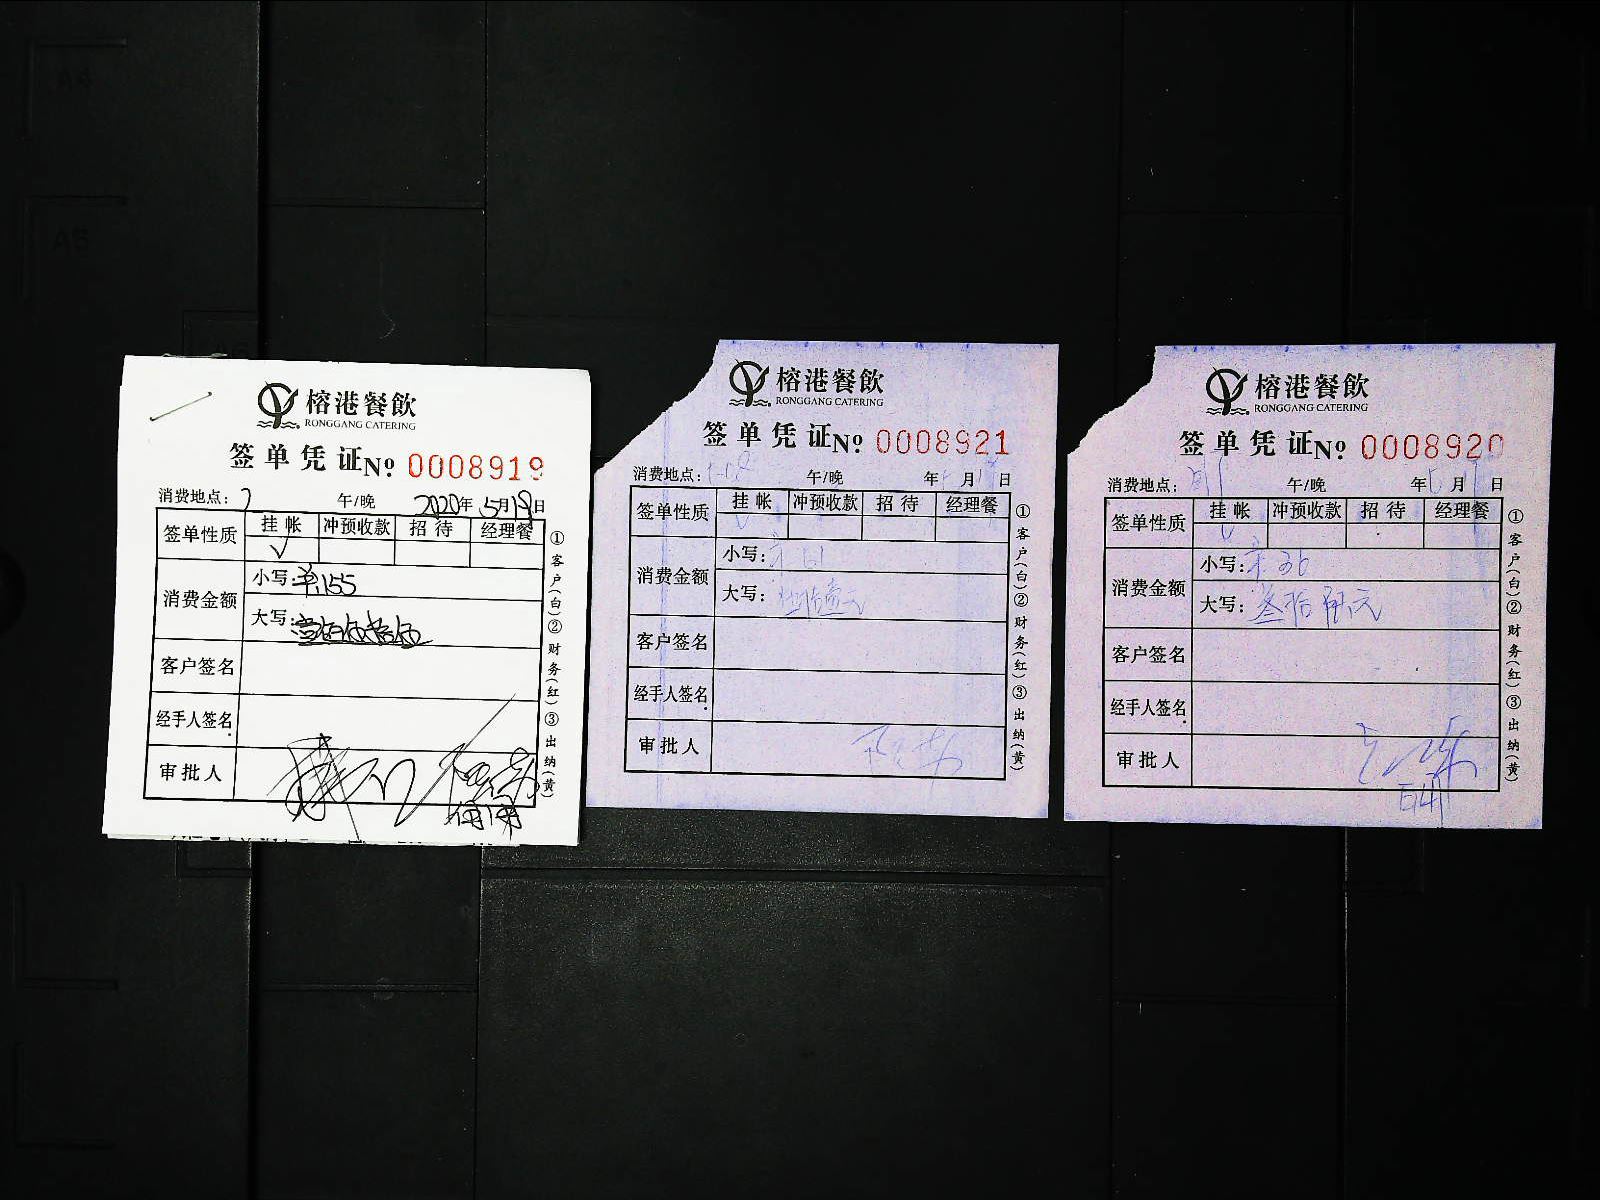 榕港餐飲
RONGGANG CATERING
签单凭证№ 0008919
消费地点: 午/晚 2020年5月19日
签单性质 挂帐 冲预收款 招待 经理餐
✓
消费金额 小写: 155
大写:
客户签名
经手人签名
审批人
①客户(白)②财务(红)③出纳(黄)
榕港餐飲
RONGGANG CATERING
签单凭证№ 0008921
消费地点: 午/晚 年 月 日
签单性质 挂帐 冲预收款 招待 经理餐
消费金额 小写: 61
大写:
客户签名
经手人签名
审批人
①客户(白)②财务(红)③出纳(黄)
榕港餐飲
RONGGANG CATERING
签单凭证№ 0008920
消费地点: 午/晚 年 月 日
签单性质 挂帐 冲预收款 招待 经理餐
消费金额 小写:
大写: 叁拾 元
客户签名
经手人签名
审批人
①客户(白)②财务(红)③出纳(黄)